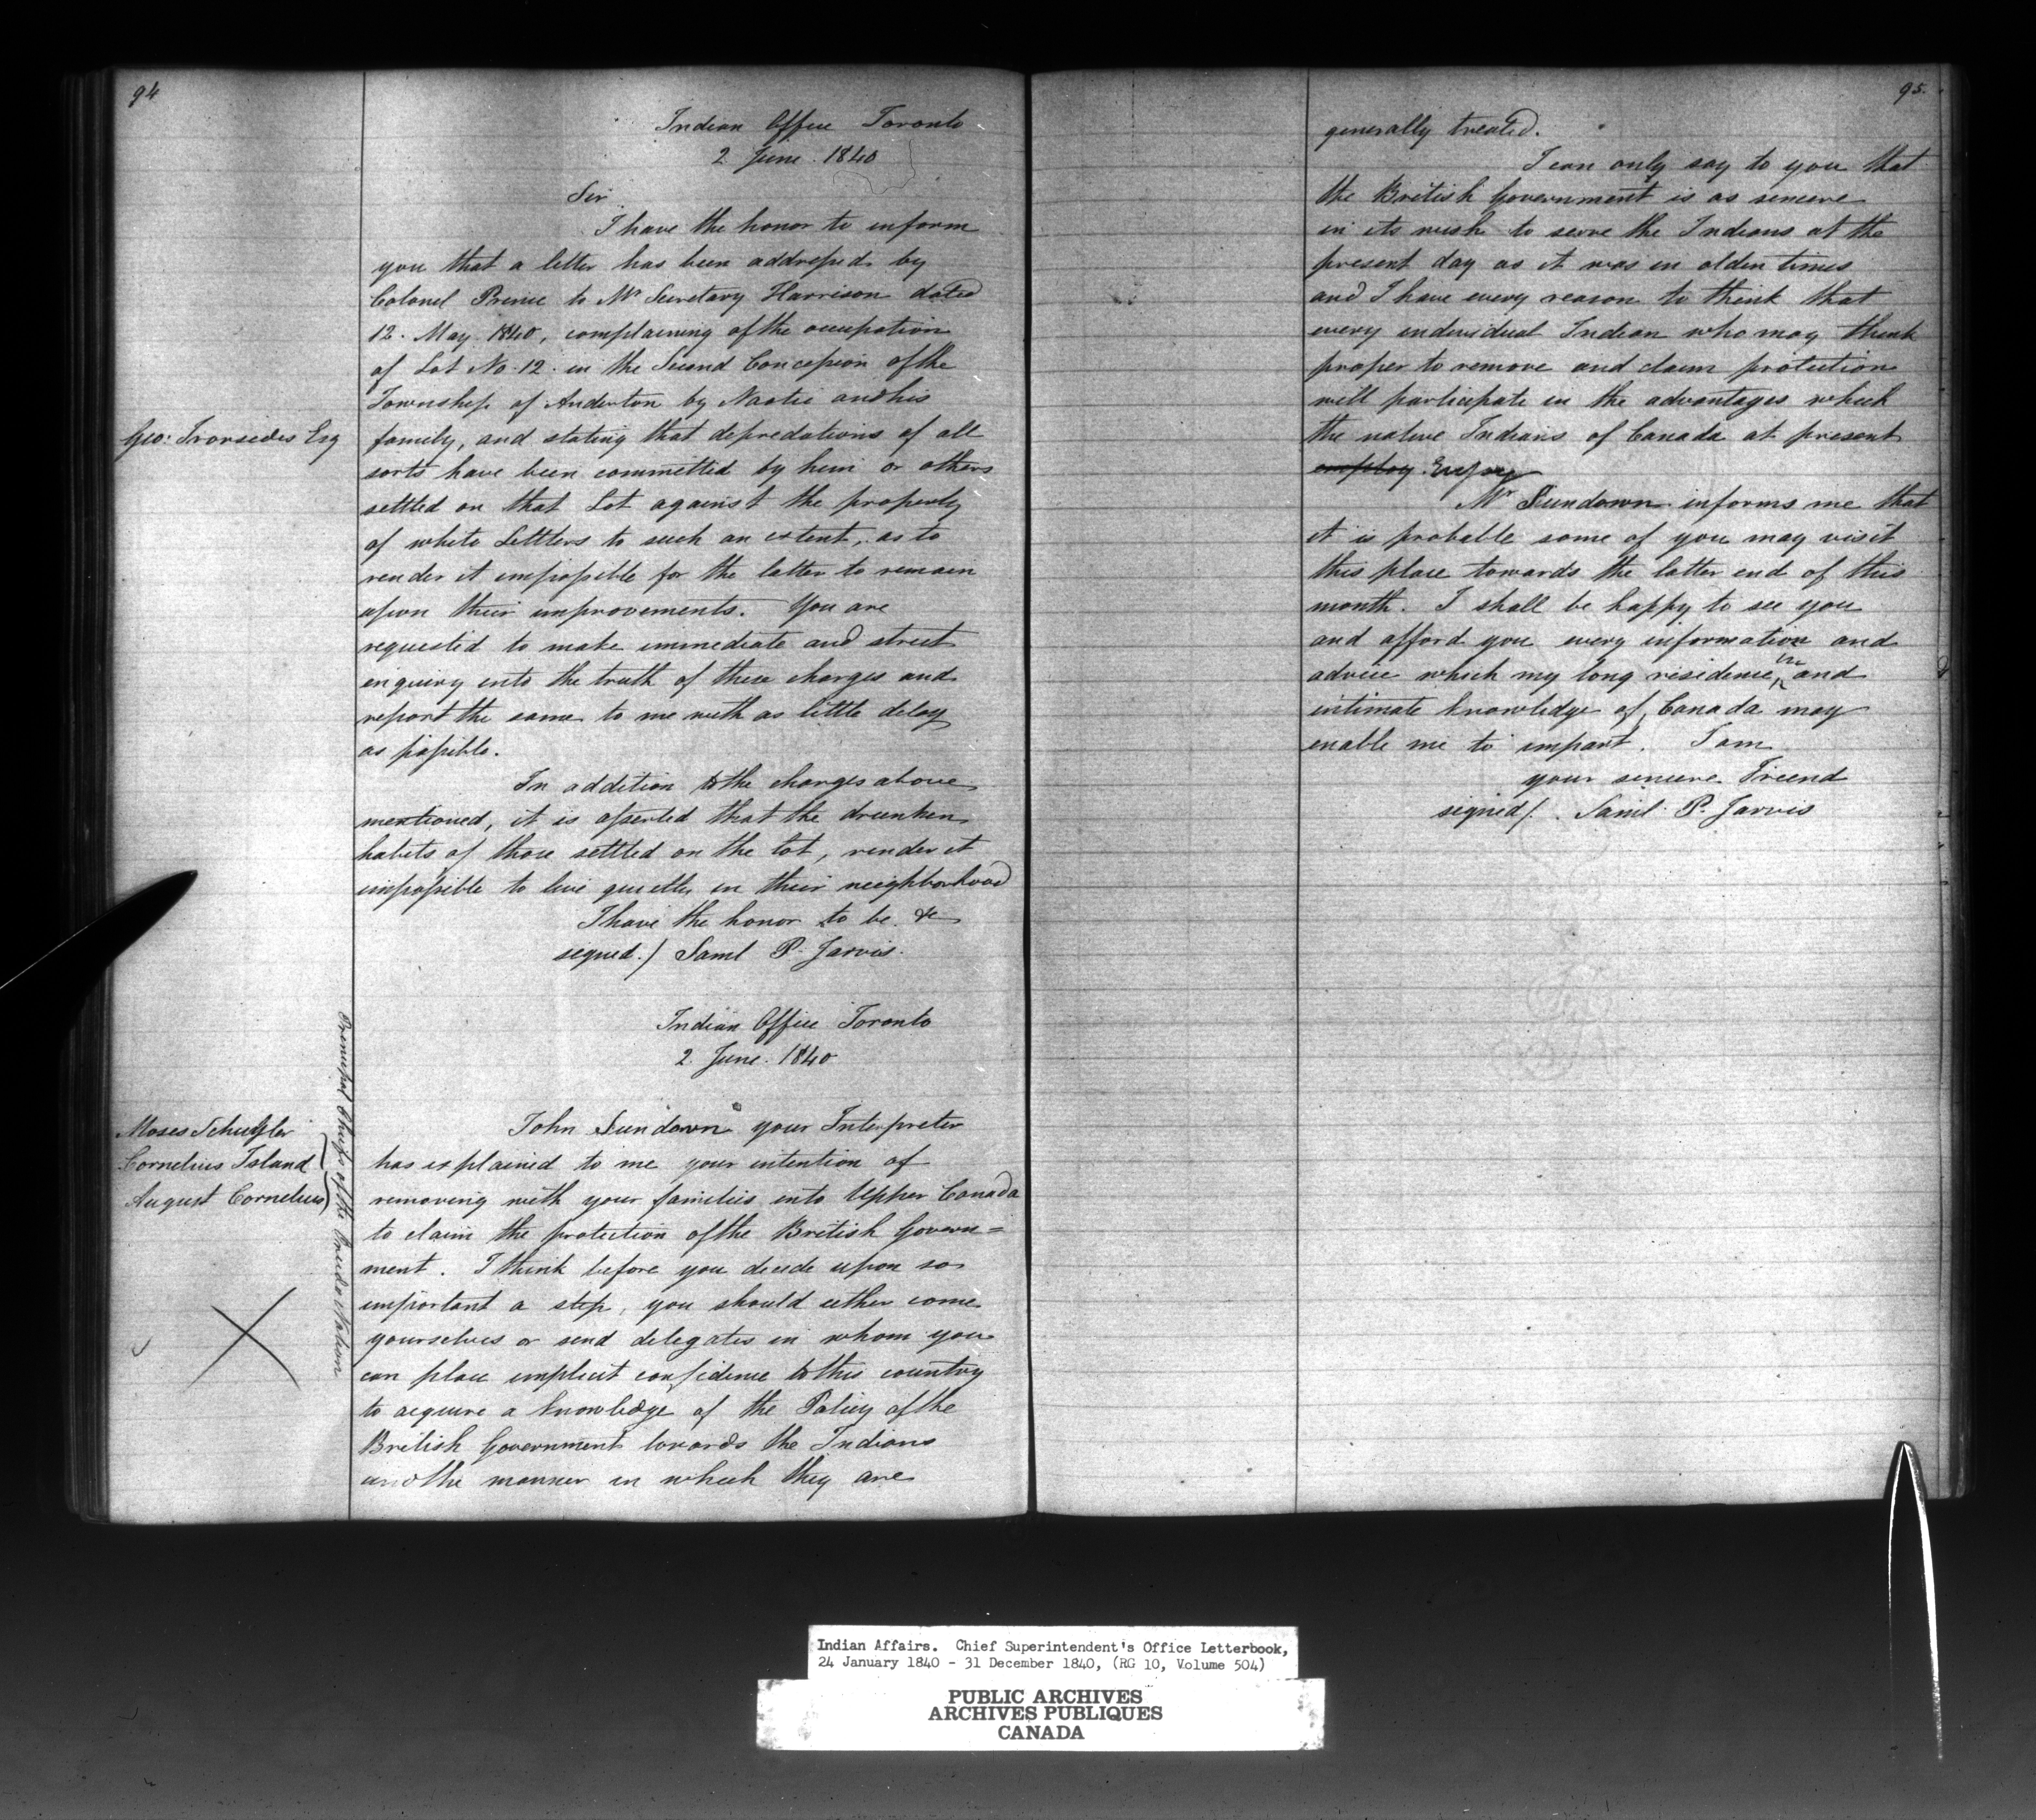 94
Indian Office Toronto
2 June. 1840
Sir
I have the honor to inform
you that a letter has been addressed by
Colonel Prince to Mr Secretary Harrison dated
12. May 1840, complaining of the occupation
of Lot No. 12. in the Second Concession of the
Township of Anderton by Naotie and his
Geo: Ironsides Esq
family, and stating that depredations of all
sorts have been committed by him or others
settled on that Lot against the property
of white Settlers to such an extent, as to
render it impossible for the latter to remain
upon their improvements. You are
requested to make immediate and street
enquiry into the truth of these charges and
report the same to me with as little delay
as possible.
In addition to the charges above
mentioned, it is asserted that the drunken
habits of those settled on the lot, render it
impossible to live quietly in their neighborhood
I have the honor to be &c
signed.) Saml P. Jarvis.
Indian Office Toronto
2. June. 1840
Moses Schuyler
Cornelius Island
August Cornelius
Principal Chiefs of the Oneida Nation
John Sundown your Interpreter
has explained to me your intention of
removing with your families into Upper Canada
to claim the protection of the British Govern=
ment. I think before you decide upon so
important a step, you should either come
yourselves or send delegates in whom you
can place implicit confidence to this country
to acquire a knowledge of the Policy of the
British Government towards the Indians
and the manner in which they are
95.
generally treated.
I can only say to you that
the British Government is as sincere
in its wish to serve the Indians at the
present day as it was in olden times
and I have every reason to think that
every individual Indian who may think
proper to remove and claim protection
will participate in the advantages which
the native Indians of Canada at present
employ Enjoy
Mr Sundown informs me that
it is probable some of you may visit
this place towards the latter end of this
month. I shall be happy to see you
and afford you every information and
advice which my long residence, in and
intimate knowledge of, Canada may
enable me to impart. I am
your sincere Friend
signed/. Saml P. Jarvis
Indian Affairs. Chief Superintendent's Office Letterbook,
24 January 1840 - 31 December 1840, (RG 10, Volume 504)
PUBLIC ARCHIVES
ARCHIVES PUBLIQUES
CANADA